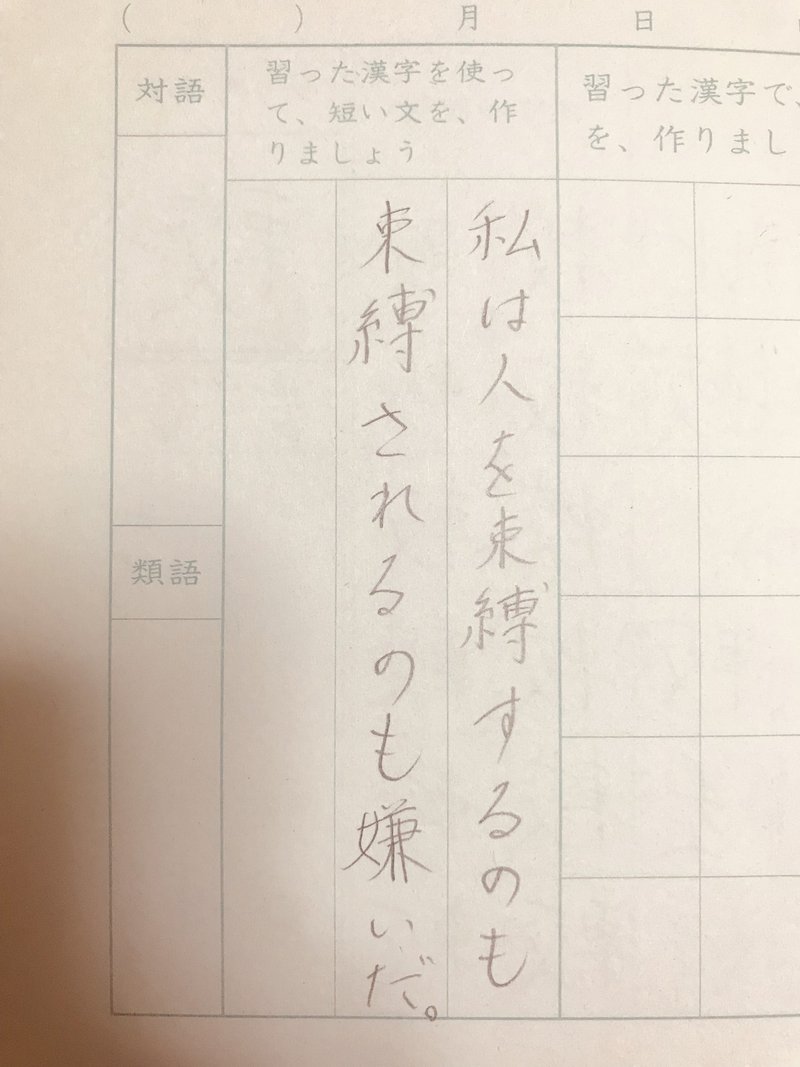 ( ) 月 日
習った漢字で、
を、作りまし
習った漢字を使っ
て、短い文を、作
りましょう
私は人を束縛するのも
束縛されるのも嫌いだ。
対語
類語